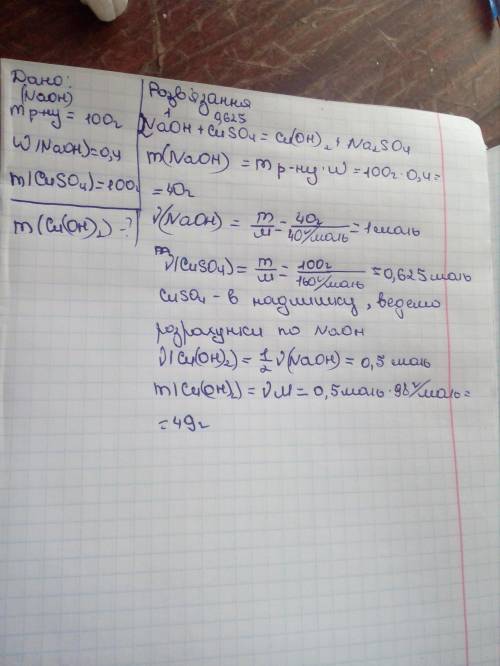 Дано:
(NaOH)
m р-ну = 100г
W(NaOH)=0,4
m(CuSO₄)=100г
m(Cu(OH)₂)-?
Розв'язання
1 0,625
2NaOH + CuSO₄ = Cu(OH)₂ + Na₂SO₄
m(NaOH) = m р-ну · W = 100г · 0,4 =
= 40г
ν(NaOH) = m/M = 40г/40г/моль = 1 моль
ν(CuSO₄) = m/M = 100г/160г/моль = 0,625 моль
CuSO₄ - в надлишку, ведемо
розрахунки по NaOH
ν(Cu(OH)₂) = 1/2 ν(NaOH) = 0,5 моль
m(Cu(OH)₂) = ν M = 0,5 моль · 98г/моль =
= 49г